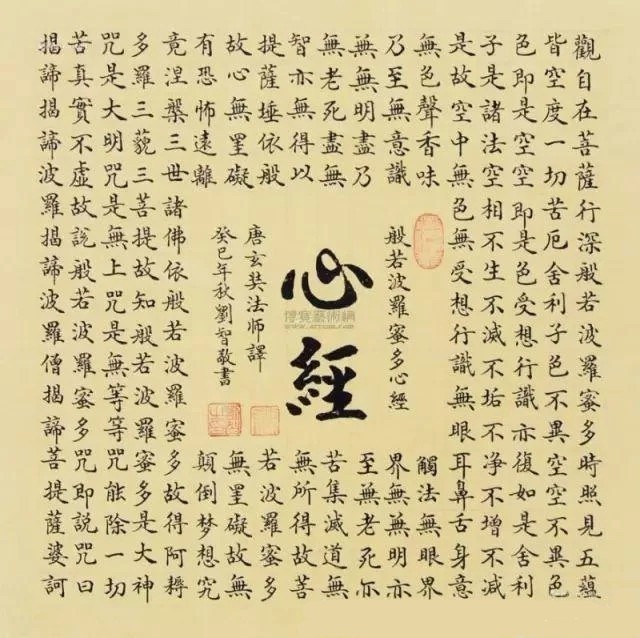 觀自在菩薩行深般若波羅蜜多時照見五蘊
皆空度一切苦厄舍利子色不異空空不異色
色即是空空即是色受想行識亦復如是舍利
子是諸法空相不生不滅不垢不净不增不減
是故空中無色無受想行識無眼耳鼻舌身意
無色聲香味
觸法無眼界
乃至無意識
界無無明亦
無無明盡乃
至無老死亦
無老死盡無
苦集滅道無
智亦無得以
無所得故菩
提薩埵依般
若波羅蜜多
故心無罣礙
無罣礙故無
有恐怖遠離
顛倒梦想究
竟涅槃三世諸佛依般若波羅蜜多故得阿耨
多羅三藐三菩提故知般若波羅蜜多是大神
咒是大明咒是無上咒是無等等咒能除一切
苦真實不虛故說般若波羅蜜多咒即説咒曰
揭諦揭諦波羅揭諦波羅僧揭諦菩提薩婆訶
般若波羅蜜多心經
心經
博寶藝術網
唐玄奘法師譯
癸巳年秋劉智敬書